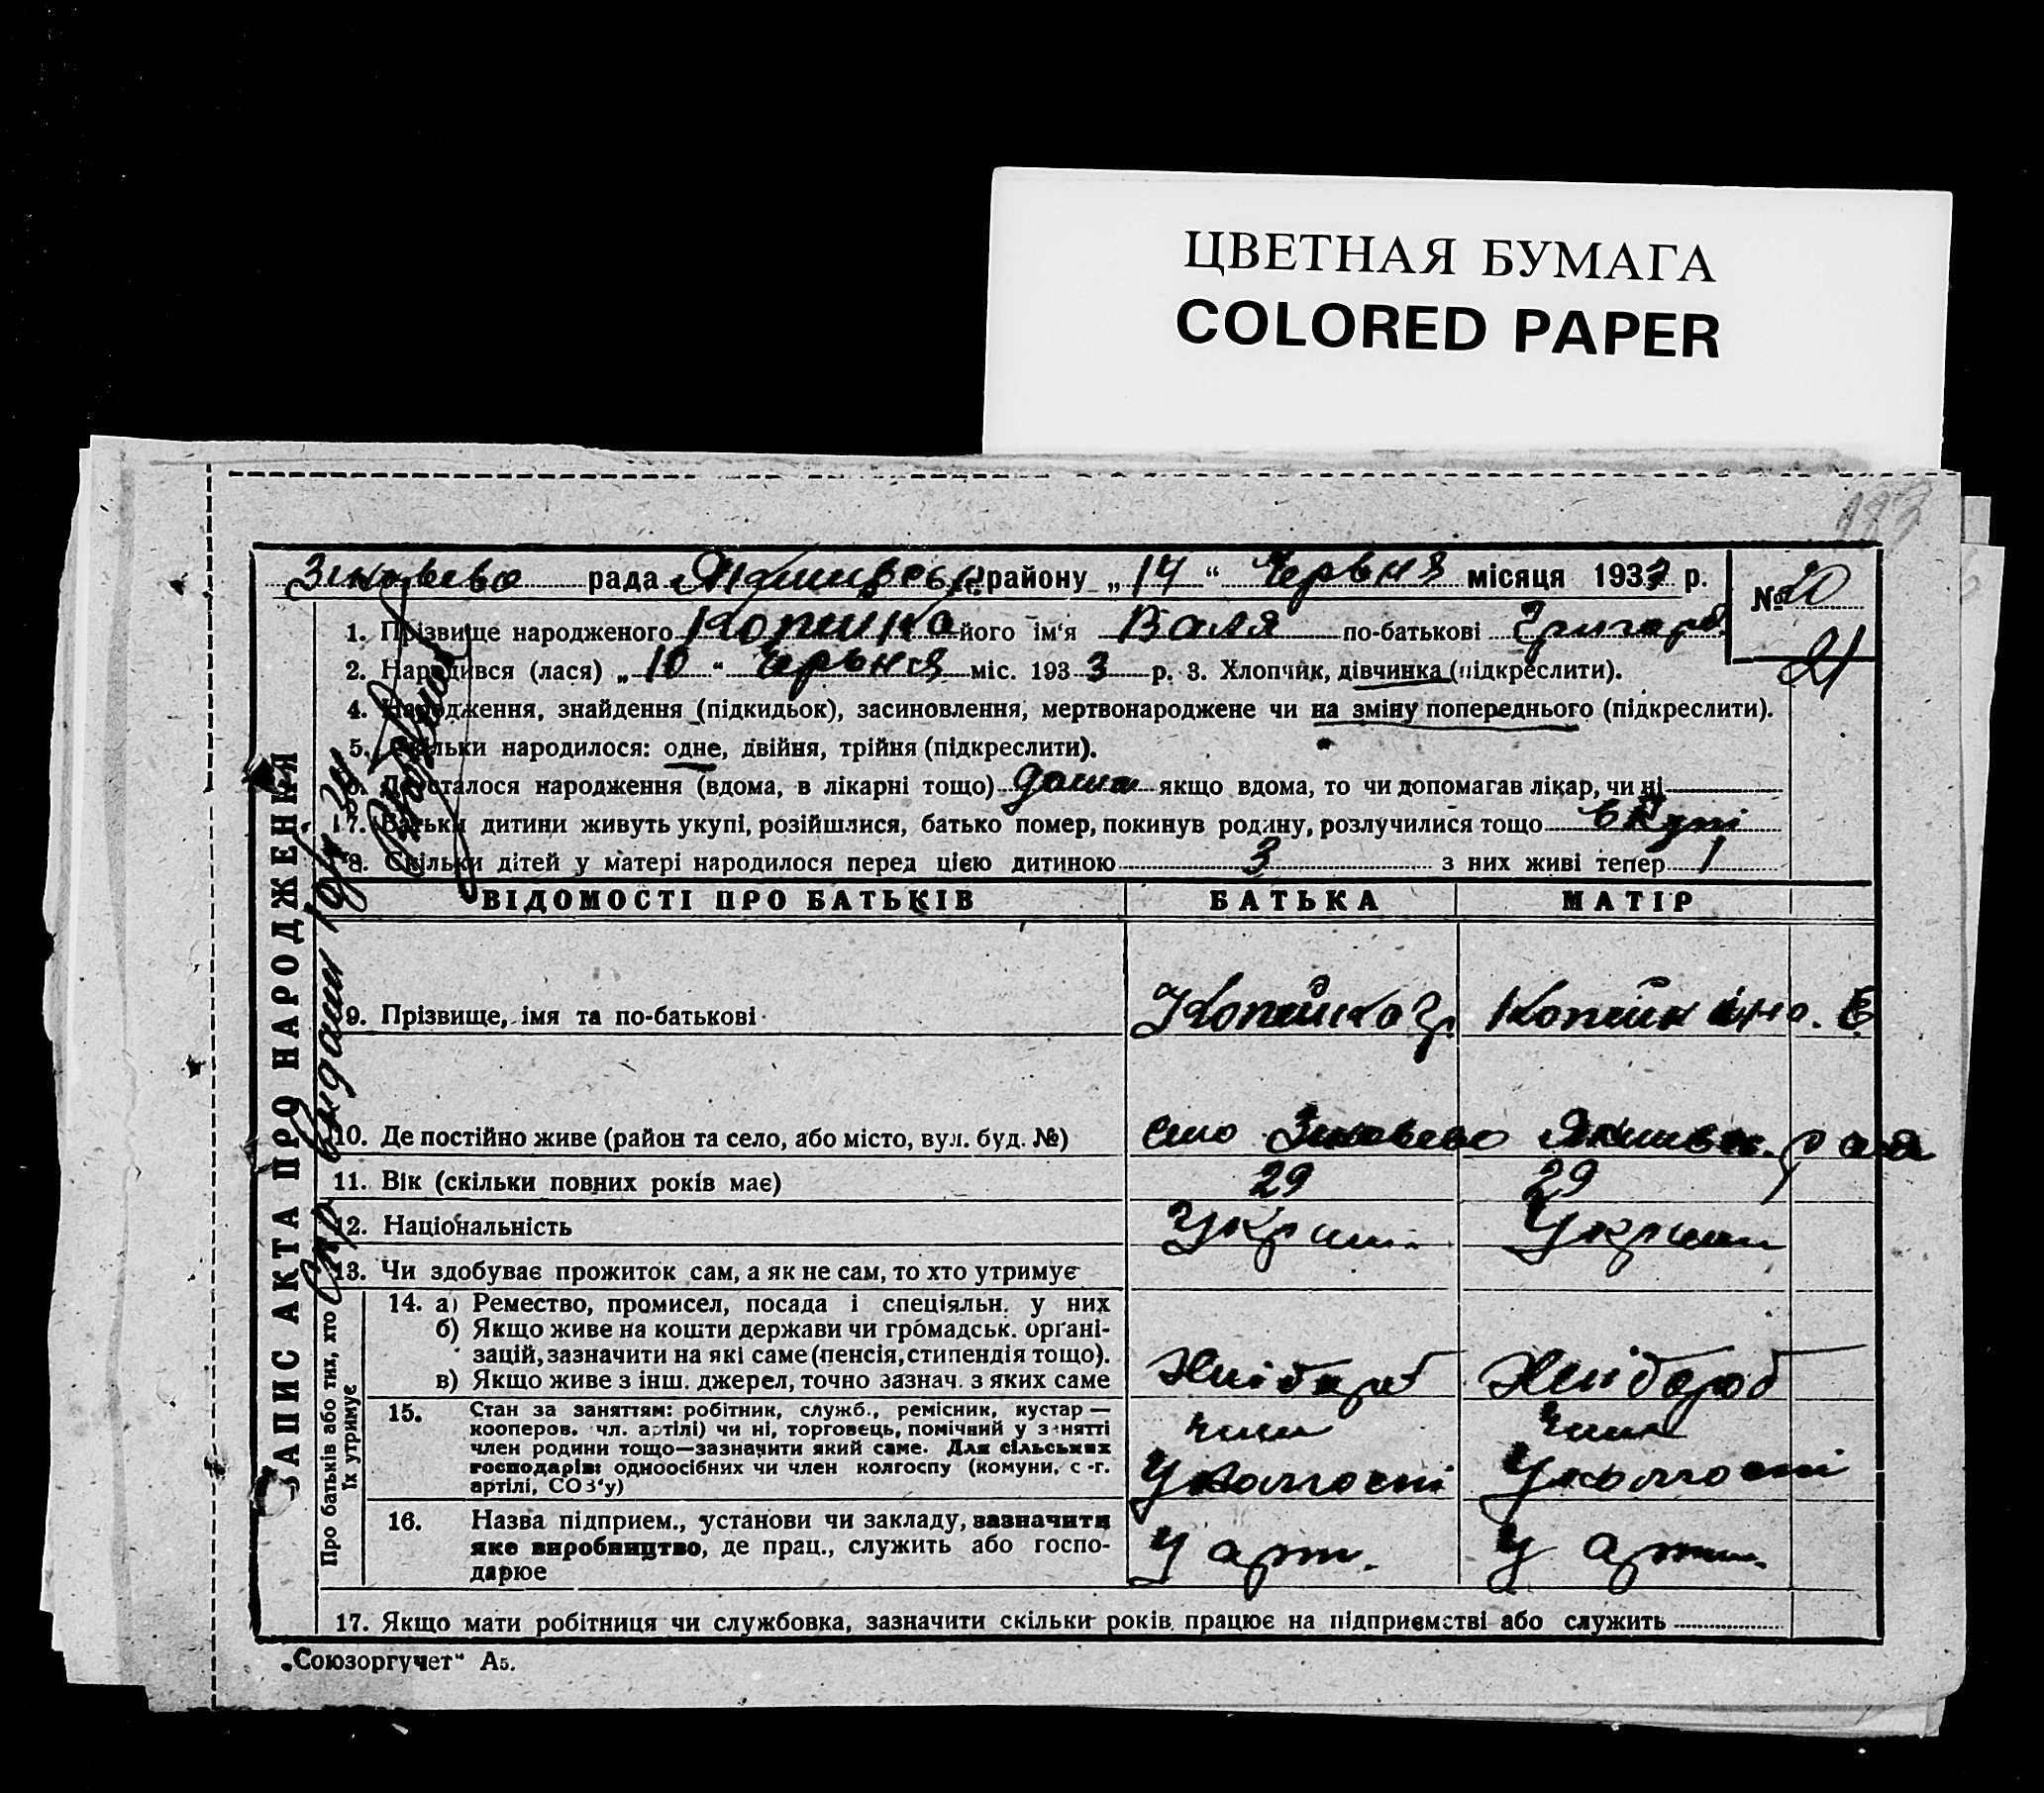 ЦВЕТНАЯ БУМАГА
COLORED PAPER
183
Зіновьево рада Якимівськ. району „14“ Червня місяця 1933 р.
№ 20
21
1. Прізвище народженого Копийка його ім'я Валя по-батькові Григоров
2. Народився (лася) „10“ Червня міс. 1933 р. 3. Хлопчик, дівчинка (підкреслити).
4. Народження, знайдення (підкидьок), засиновлення, мертвонароджене чи на зміну попереднього (підкреслити).
5. Скільки народилося: одне, двійня, трійня (підкреслити).
6. Де сталося народження (вдома, в лікарні тощо) дома якщо вдома, то чи допомагав лікар, чи ні
7. Батьки дитини живуть укупі, розійшлися, батько помер, покинув родину, розлучилися тощо вкупі
8. Скільки дітей у матері народилося перед цією дитиною 3 з них живі тепер 1
ЗАПИС АКТА ПРО НАРОДЖЕННЯ
ВІДОМОСТІ ПРО БАТЬКІВ БАТЬКА МАТІР
9. Прізвище, імя та по-батькові Копийка Гр. Копийк
10. Де постійно живе (район та село, або місто, вул. буд. №) село Зіновьево рая
11. Вік (скільки повних років має) 29 29
12. Національність Украин. Украин
13. Чи здобуває прожиток сам, а як не сам, то хто утримує
Про батьків або тих, хто їх утримує
14. а) Ремество, промисел, посада і спеціяльн. у них
б) Якщо живе на кошти держави чи громадськ. органі-
зацій, зазначити на які саме (пенсія, стипендія тощо).
в) Якщо живе з інш. джерел, точно зазнач. з яких саме Хлібороб Хлібороб
15. Стан за заняттям: робітник, служб., ремісник, кустар —
кооперов. чл. артілі) чи ні, торговець, помічний у занятті
член родини тощо—зазначити який саме. Для сільських
господарів: одноосібних чи член колгоспу (комуни, с.-г.
артілі, СОЗ'у)
член член
У колгоспі У колгоспі
16. Назва підприєм., установи чи закладу, зазначити
яке виробництво, де прац., служить або госпо-
дарює
У арт. У арт.
17. Якщо мати робітниця чи службовка, зазначити скільки років працює на підприємстві або служить
„Союзоргучет“ А5.